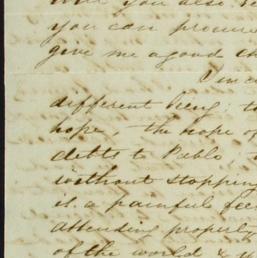 you also
you can procure
give me a good
different being; to
hope, the hope of
debts to Pablo,
without stopping
is a painful fee
attending properly
of the world &